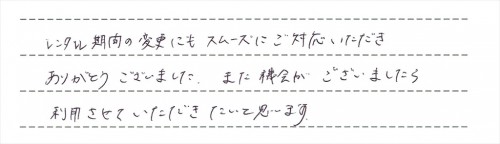 レンタル期間の変更にも スムーズにご対応いただき
ありがとう ございました. また 機会が ございましたら
利用させて いただき たいと思います.